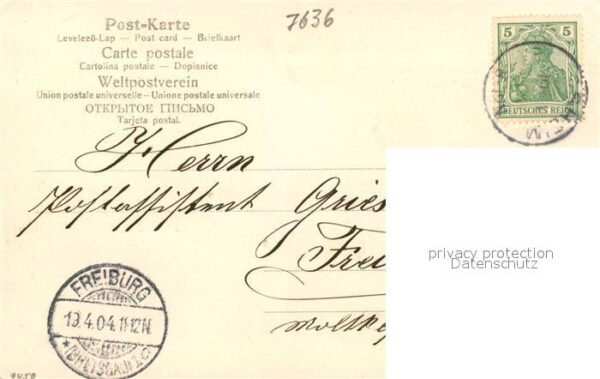 Post-Karte
Levelező-Lap — Post card — Briefkaart
Carte postale
Cartolina postale — Dopisnice
Weltpostverein
Union postale universelle — Unione postale universale
ОТКРЫТОЕ ПИСЬМО
Tarjeta postal.
7636
5 5
DEUTSCHES REICH
Herrn
Postassistent Gries
Frei
Moltke
privacy protection
Datenschutz
FREIBURG
19.4.04.11-12N.
*(BREISGAU)